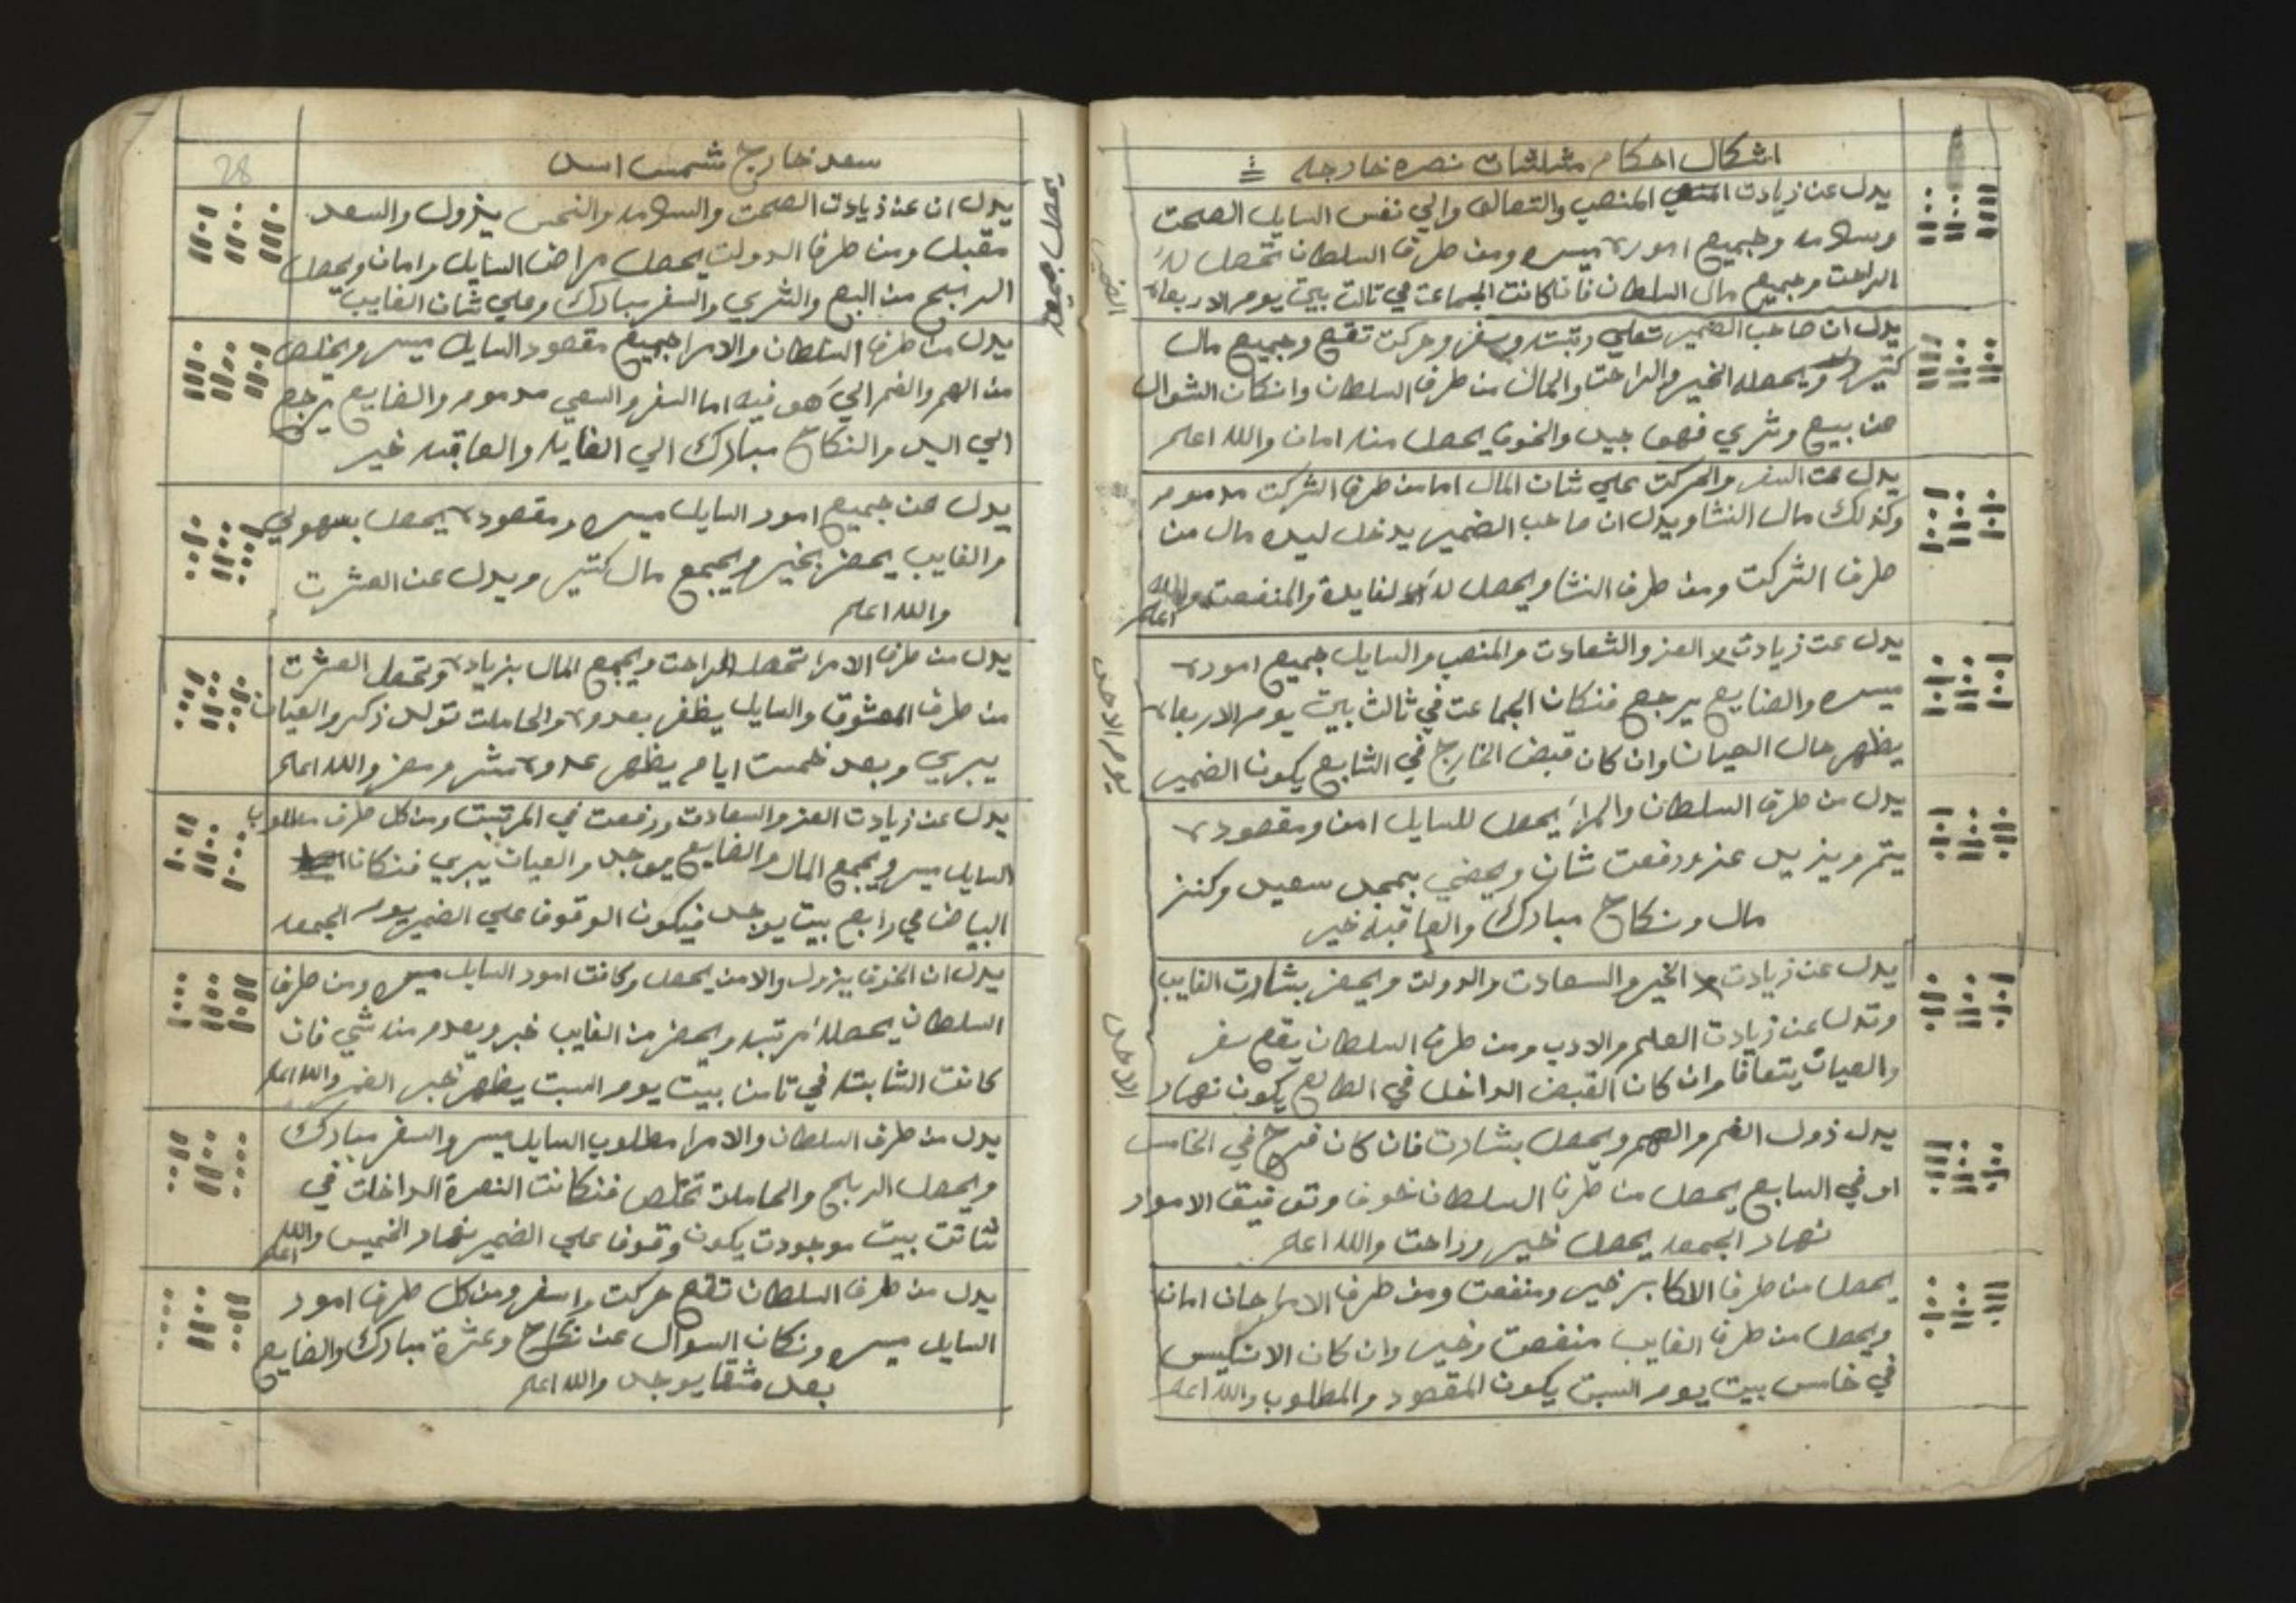 اشكال احكام مثلثات نصره خارجه
يدل عن زيادت المنصب والتعالي والي نفس السايل الصحت
وسلامه وجميع اموره ميسره ومن طرف السلطان تحصل له
الراحت وجميع مال السلطان فان كانت الجماعت في تالت بيت يوم الاربعاء
الضمير
يدل ان صاحب الضمير تعلي رتبته وسفر وحركت تقع وجميع مال
كتير ويحصله الخير والراحت والمال من طرف السلطان وانكان السوال
عن بيع وشري فهو جيد والخوف يحصل منه امان والله اعلم
يدل عن السفر والحركت علي شان المال اما من طرف الشركت مدموم
وكذلك مال النشا ويدل ان صاحب الضمير يدخل ليده مال من
طرف الشركت ومن طرف النشا ويحصل له الفايدة والمنفعت والله اعلم
يدل عن زيادت العز والسعادت والمنصب والسايل جميع اموره
ميسره والضايع يرجع فنكان الجماعت في ثالث بيت يوم الاربعاء
يظهر حال العيان وان كان قبض الخارج في السابع يكون الضمير
يوم الاحد
يدل من طرف السلطان والامرا يحصل للسايل امن ومقصوده
يتم ويزيد عز ورفعت شان ويمضي بمجد سعيد وكنز
مال ونكاح مبارك والعاقبه خير
يدل عن زيادت الخير والسعادت والدولت ويحضر بشارت الغايب
وتدل عن زيادت العلم والادب ومن طرف السلطان يقع سفر
والعيان يتعافا وان كان القبض الداخل في الطالع يكون نهار
الاحد
يدل زول الغم والهم ويحصل بشارت فان كان فرح في الخامس
او في السابع يحصل من طرف السلطان خوف وتوفيق الامور
نهار الجمعه يحصل خير وراحت والله اعلم
يحصل من طرف الاكابر خير ومنفعت ومن طرف الامراحان امان
ويحصل من طرف الغايب منفعت وخير وان كان الانكيس
في خامس بيت يوم السبت يكون المقصود والمطلوب والله اعلم
28
سعد خارج شمس اسد
يدل ان عن زيادت الصحت والسلامه والنحس يزول والسعد
مقبل ومن طرف الدولت يحصل مراض السايل وامان ويحصل
الربح من البيع والشري والسفر مبارك وعلي شان الغايب
يحصل جمعه
يدل من طرف السلطان والامرا جميع مقصود السايل ميسر ويخلص
من الهم والغم الي هو فيه اما السفر والسعي مدموم والضايع يرجع
الي اليد والنكاح مبارك الي الغايه والعاقبه خير
يدل عن جميع امور السايل ميسره ومقصوده يحصل بسهولي
والغايب يحضر بخير ويجمع مال كتير ويدل عن العشرت
والله اعلم
يدل من طرف الامرا تحصل الراحت ويجمع المال بزياده وتحصل العشرت
من طرف المعشوق والسايل يظفر بعدوه والحاملت تولد ذكر والعيان
يبري وبعد خمست ايام يظهر عدوه والله اعلم
يدل عن زيادت العز والسعادت ورفعت في المرتبت ومن كل طرف مطلوب
السايل ميسر ويجمع المال والضايع يوجد والعيان يبري فنكان
البياض في رابع بيت يوجد فيكون الوقوف علي الضمير يوم الجمعه
يدل ان الخوف يزول والامن يحصل وكانت امور السايل ميسره ومن طرف
السلطان يحصله مرتبه ويحضر من الغايب خبر ويعدم منه شي فان
كانت الثابته في تامن بيت يوم السبت يظهر خبر الضمير والله اعلم
يدل من طرف السلطان والامرا مطلوب السايل ميسر والسفر مبارك
ويحصل الربح والحاملت تخلص فنكانت النصرة الداخلت في
ثالت بيت موجودت يكون وقوف علي الضمير نهار الخميس والله اعلم
يدل من طرف السلطان تقع حركت واسفر ومن كل طرف امور
السايل ميسره ونكان السوال عن نكاح وعشرة مبارك والضايع
بعد مشقا يوجد والله اعلم